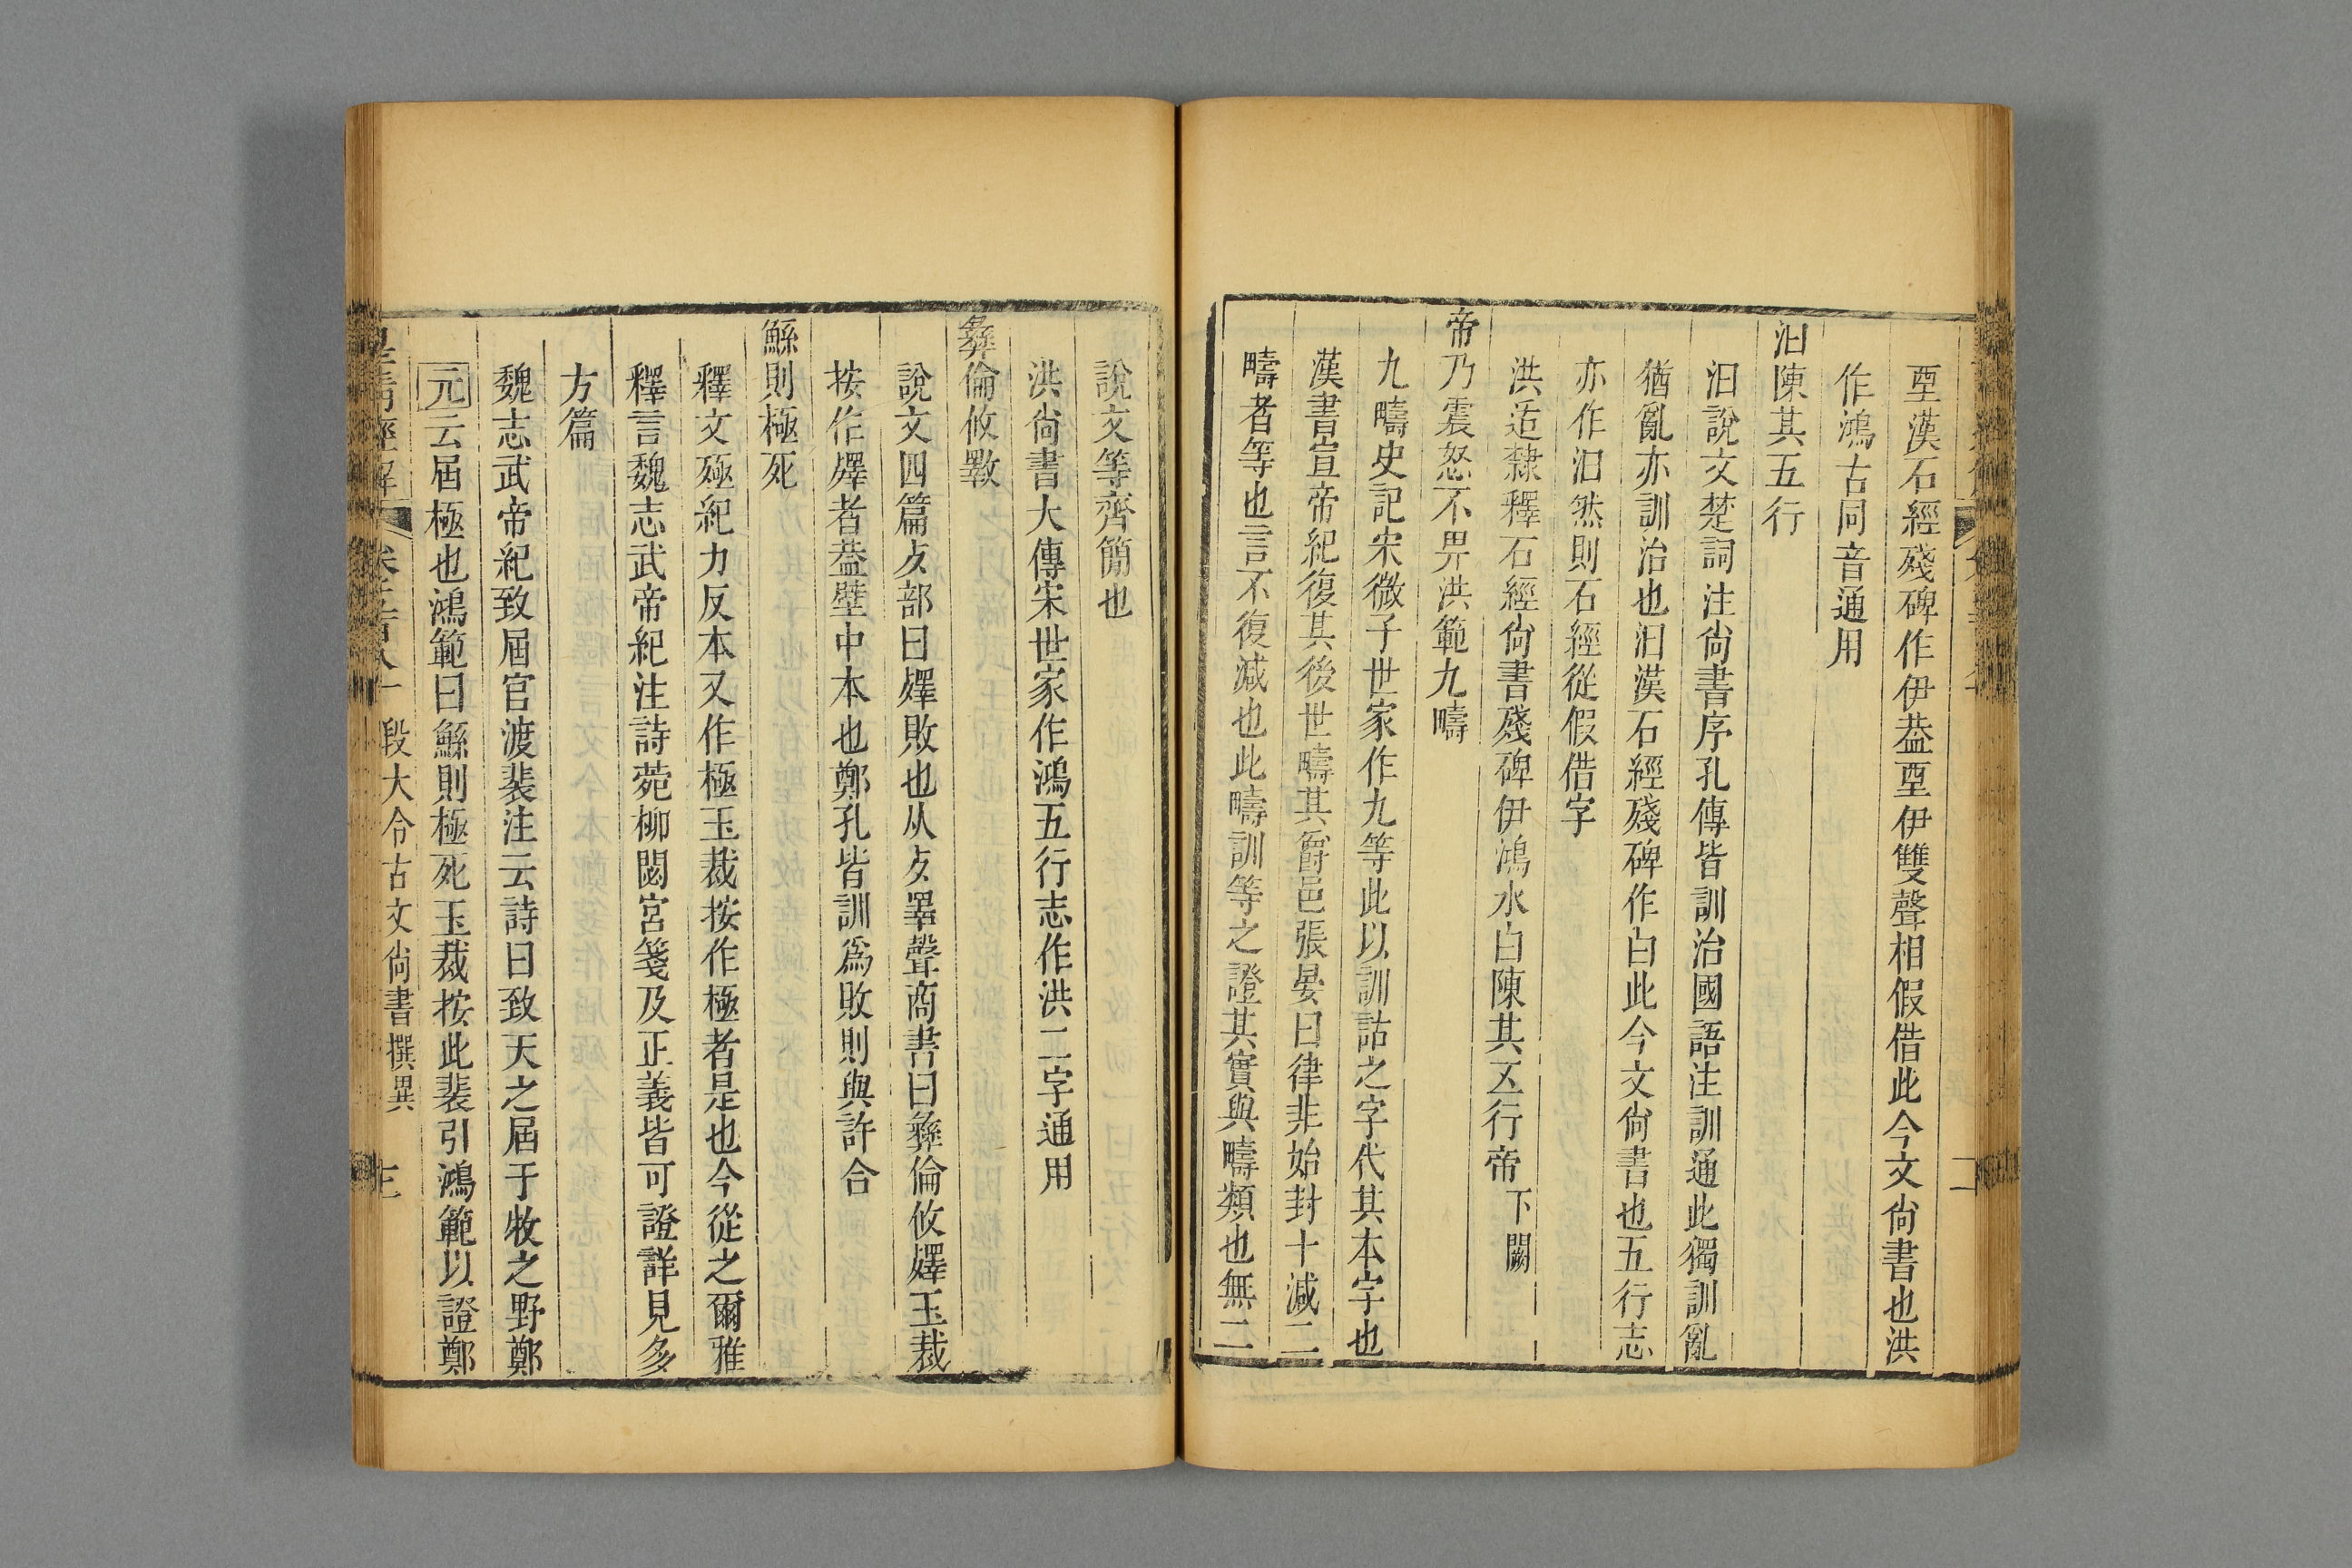 垔漢石經殘碑作伊葢垔伊雙聲相假借此今文尙書也洪
作鴻古同音通用
汩陳其五行
汩說文楚詞注尙書序孔傳皆訓治國語注訓通此獨訓亂
猶亂亦訓治也汩漢石經殘碑作曰此今文尙書也五行志
亦作汩然則石經從假借字
洪适隸釋石經尙書殘碑伊鴻水曰陳其五行帝下闕
帝乃震怒不畀洪範九疇
九疇史記宋微子世家作九等此以訓詁之字代其本字也
漢書宣帝紀復其後世疇其爵邑張晏曰律非始封十減二
疇者等也言不復減也此疇訓等之證其實與疇類也無二
說文等齊簡也
洪尙書大傳宋世家作鴻五行志作洪二字通用
彝倫攸斁
說文四篇歺部曰殬敗也从歺睪聲商書曰彝倫攸殬玉裁
按作殬者葢壁中本也鄭孔皆訓爲敗則與許合
鯀則極死
釋文殛紀力反本又作極玉裁按作極者是也今從之爾雅
釋言魏志武帝紀注詩菀柳閟宮箋及正義皆可證詳見多
方篇
魏志武帝紀致屆官渡裴注云詩曰致天之屆于牧之野鄭
元云屆極也鴻範曰鯀則極死玉裁按此裴引鴻範以證鄭
皇清經解 段大令古文尙書撰異